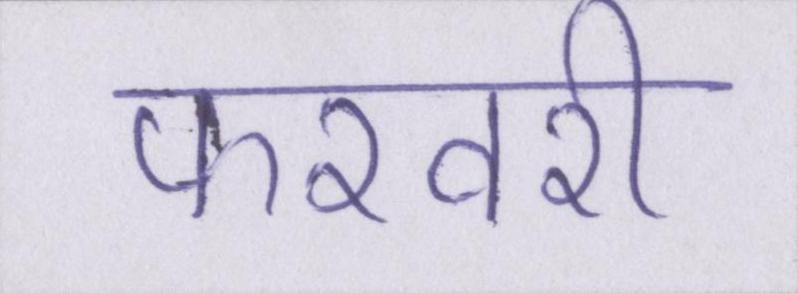 फरवरी